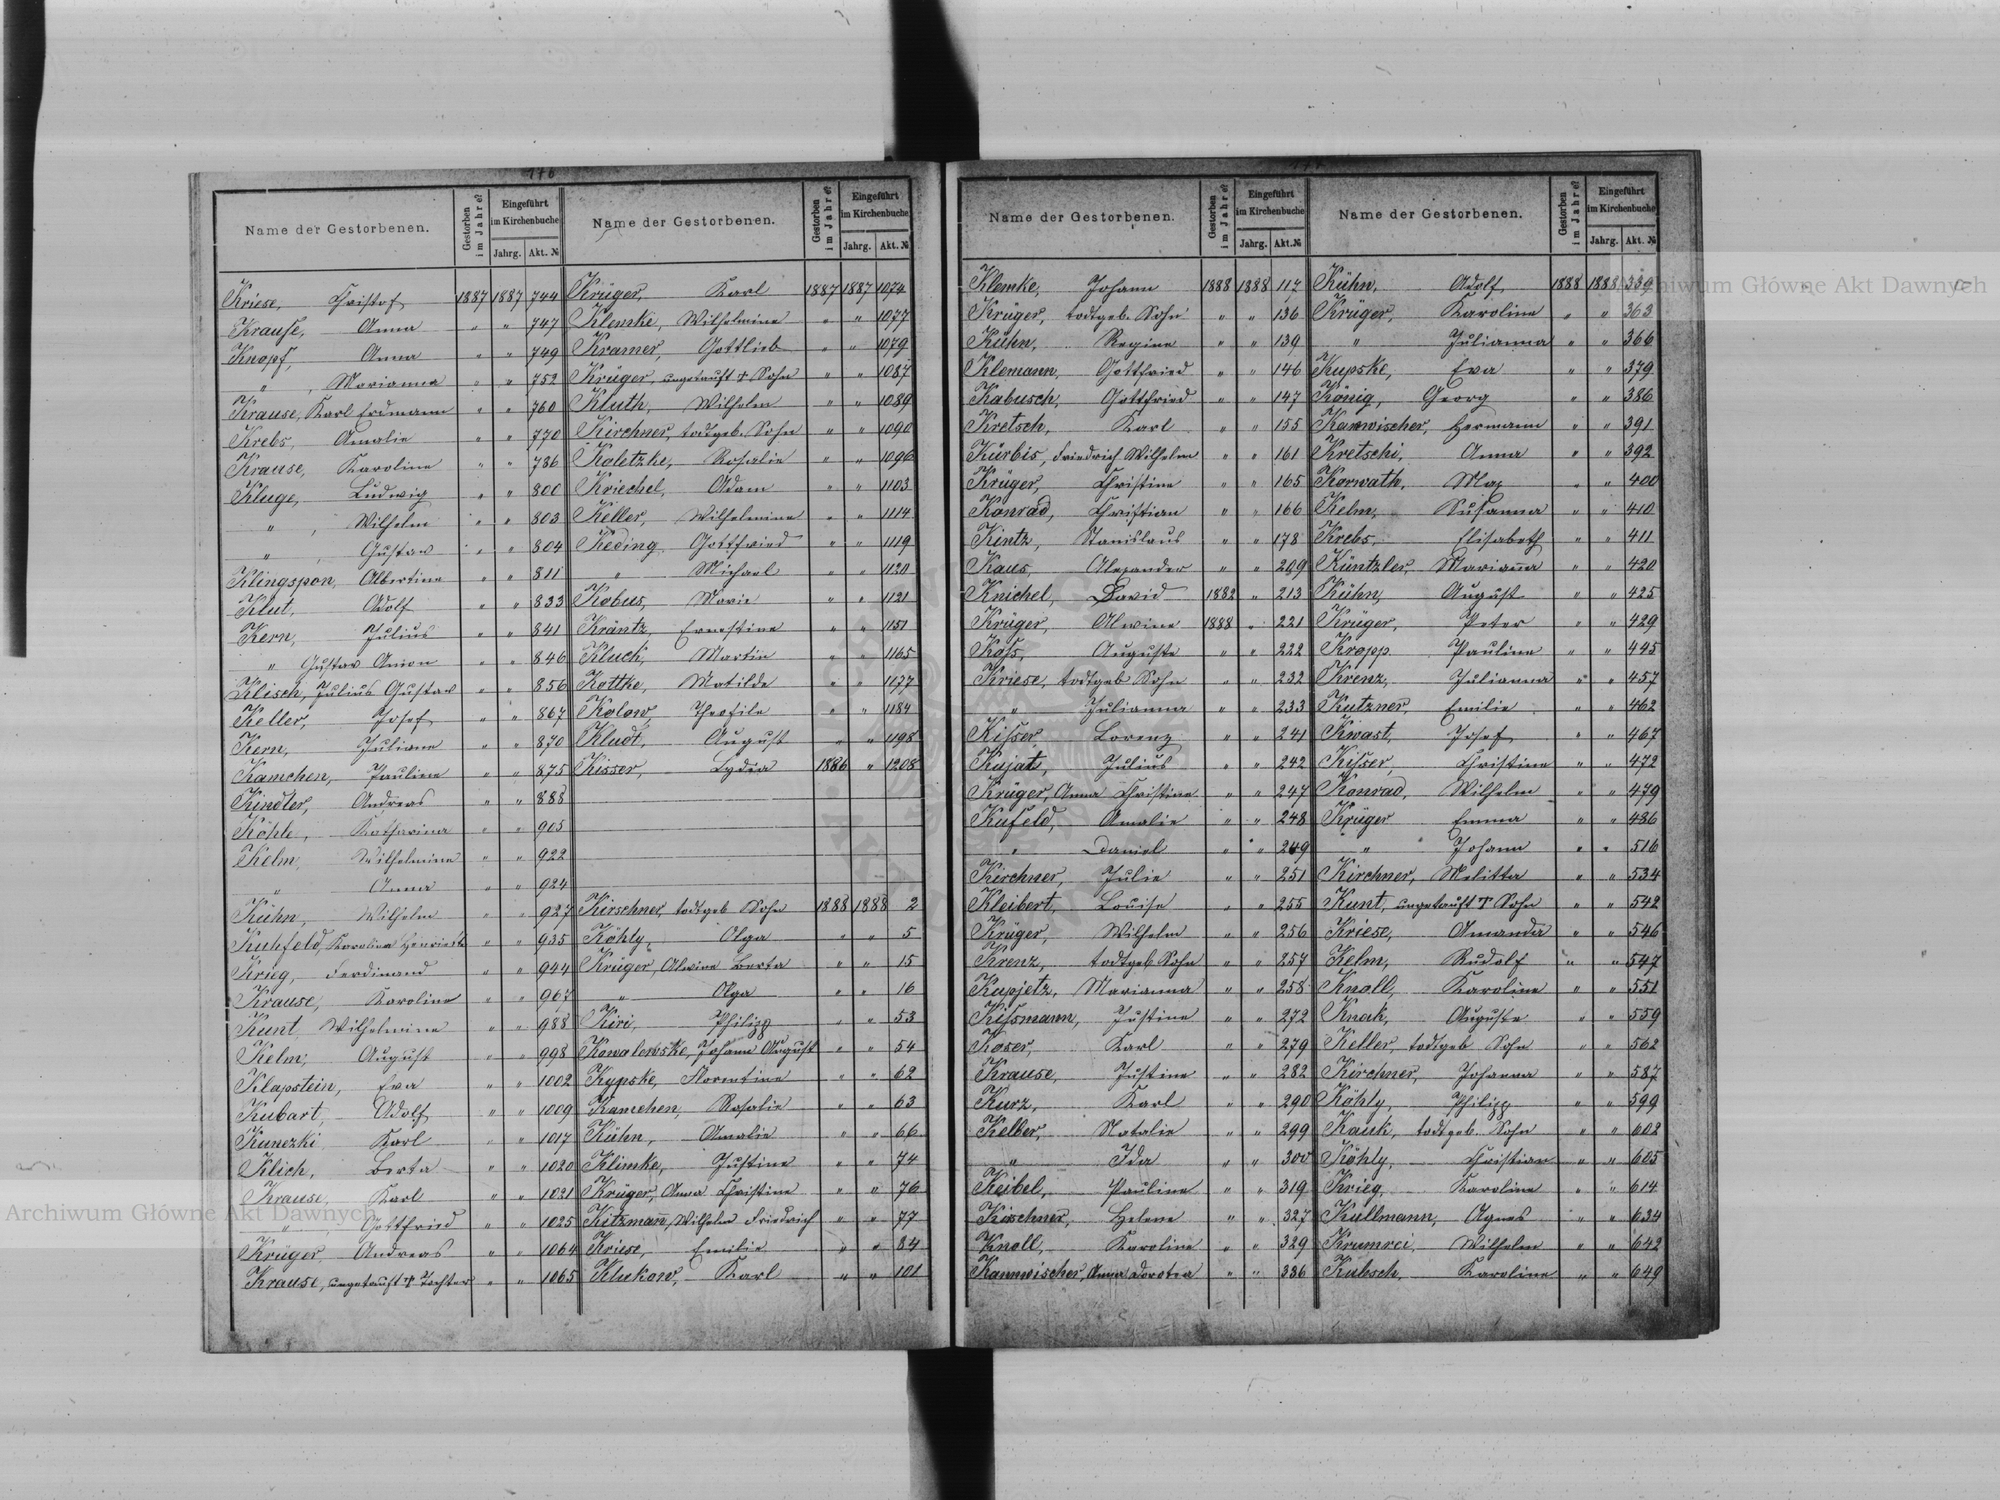 176
Name der Gestorbenen. Gestorben im Jahre? Eingeführt im Kirchenbuche Jahrg. Akt. №
Name der Gestorbenen. Gestorben im Jahre? Eingeführt im Kirchenbuche Jahrg. Akt. №
Kriese, Christof 1887 1887 744
Krause, Anna " " 747
Knopf, Anna " " 749
" , Marianna " " 752
Krause, Karl Erdmann " " 760
Krebs, Amalie " " 770
Krause, Karoline " " 786
Kluge, Ludwig " " 800
" , Wilhelm " " 803
" Gustav " " 804
Klingspon, Albertine " " 811
Klut, Adolf " " 833
Kern, Julius " " 841
" Gustav Anion " " 846
Klisch, Julius Gustav " " 856
Keller, Josef " " 867
Kern, Juliane " " 870
Kamchen, Pauline " " 875
Kindler, Andreas " " 888
Köhle, Katharina " " 905
Kelm, Wilhelmine " " 922
" Anna " " 924
Kühn, Wilhelm " " 927
Kuhfeld, Karoline Henriette " " 935
Krieg, Ferdinand " " 944
Krause, Karoline " " 967
Kunt, Wilhelmine " " 988
Kelm, August " " 998
Klapstein, Eva " " 1002
Kubart, Adolf " " 1009
Kunezki Karl " " 1017
Klich, Berta " " 1020
Krause, Karl " " 1021
" , Gottfried " " 1025
Krüger, Andreas " " 1064
Krause, ungetauft † Tochter " " 1065
Krüger, Karl 1887 1887 1074
Klemke, Wilhelmine " " 1077
Kramer, Gottlieb " " 1079
Krüger, ungetauft † Sohn " " 1087
Kluth, Wilhelm " " 1089
Kirchner, todtgeb. Sohn " " 1090
Koletzke, Rosalie " " 1096
Kriechel, Adam " " 1103
Keller, Wilhelmine " " 1114
Keding, Gottfried " " 1119
" Michael " " 1120
Kobus, Marie " " 1121
Kräntz, Ernestine " " 1151
Kluck, Martin " " 1165
Kottke, Matilde " " 1177
Kolow, Theofile " " 1184
Kludt, August " " 1198
Kisser, Lydia 1886 " 1208
Kirschner, todtgeb Sohn 1888 1888 2
Köhly, Olga " " 5
Krüger, Alwine Berta " " 15
" Olga " " 16
Kiri, Philipp " " 53
Kowalewske, Johann August " " 54
Kypske, Florentine " " 62
Kamchen, Rosalie " " 63
Kühn, Amalie " " 66
Klimke, Justine " " 74
Krüger, Anna Christine " " 76
Kitzmañ, Wilhelm Friedrich " " 77
Kriese, Emilie " " 84
Klukow, Karl " " 101
Name der Gestorbenen. Gestorben im Jahre? Eingeführt im Kirchenbuche Jahrg. Akt. №
Name der Gestorbenen. Gestorben im Jahre? Eingeführt im Kirchenbuche Jahrg. Akt. №
Klemke, Johann 1888 1888 117
Krüger, todtgeb. Sohn " " 136
Kühn, Regine " " 139
Klemann, Gottfried " " 146
Kabusch, Gottfried " " 147
Kretsch, Karl " " 155
Kürbis, Friedrich Wilhelm " " 161
Krüger, Christine " " 165
Konrad, Christian " " 166
Kintz, Stanislaus " " 178
Kaus, Alexander " " 209
Knichel, David 1882 " 213
Krüger, Alwine 1888 " 221
Koss, Auguste " " 222
Kriese, todtgeb Sohn " " 232
" Julianna " " 233
Kisser Lorenz " " 241
Kujat, Julius " " 242
Krüger, Anna Christine " " 247
Kufeld, Amalie " " 248
" Daniel " " 249
Kirchner, Julie " " 251
Kleibert, Louise " " 255
Krüger, Wilhelm " " 256
Krenz, todtgeb Sohn " " 257
Kupjetz, Marianna " " 258
Kissmann, Justine " " 272
Koser, Karl " " 279
Krause, Justine " " 282
Kurz, Karl " " 290
Kelber, Natalie " " 299
" Ida " " 300
Keibel, Pauline " " 319
Kirschner, Helene " " 327
Knoll, Karoline " " 329
Kannwischer, Anna Dorotea " " 336
Kühn, Adolf 1888 1888 339
Krüger, Karoline " " 363
" Julianna " " 366
Kupske, Eva " " 379
König, Georg " " 386
Kanwischer, Hermann " " 391
Kretschi, Anna " " 392
Korwath, Max " " 400
Kelm, Susanna " " 410
Krebs, Elisabeth " " 411
Küntzler, Mariaña " " 420
Kühn, August " " 425
Krüger, Peter " " 429
Kropp Pauline " " 445
Krenz, Julianna " " 457
Kutzner, Emilie " " 462
Kwast, Josef " " 467
Kisser, Christine " " 472
Konrad, Wilhelm " " 479
Krüger Emma " " 486
" Johann " " 516
Kirchner, Melitta " " 534
Kunt, ungetauft † Sohn " " 542
Kriese, Amanda " " 546
Kelm, Rudolf " " 547
Knoll, Karoline " " 551
Knak, Auguste " " 559
Keller, todtgeb Sohn " " 562
Kirchner, Johanna " " 587
Köhly, Philipp " " 599
Kauk, todtgeb. Sohn " " 602
Köhly, Christian " " 605
Krieg, Karoline " " 614
Kullmann, Agnes " " 634
Krumrei, Wilhelm " " 642
Kubsch, Karoline " " 649
Archiwum Główne Akt Dawnych
Archiwum Główne Akt Dawnych